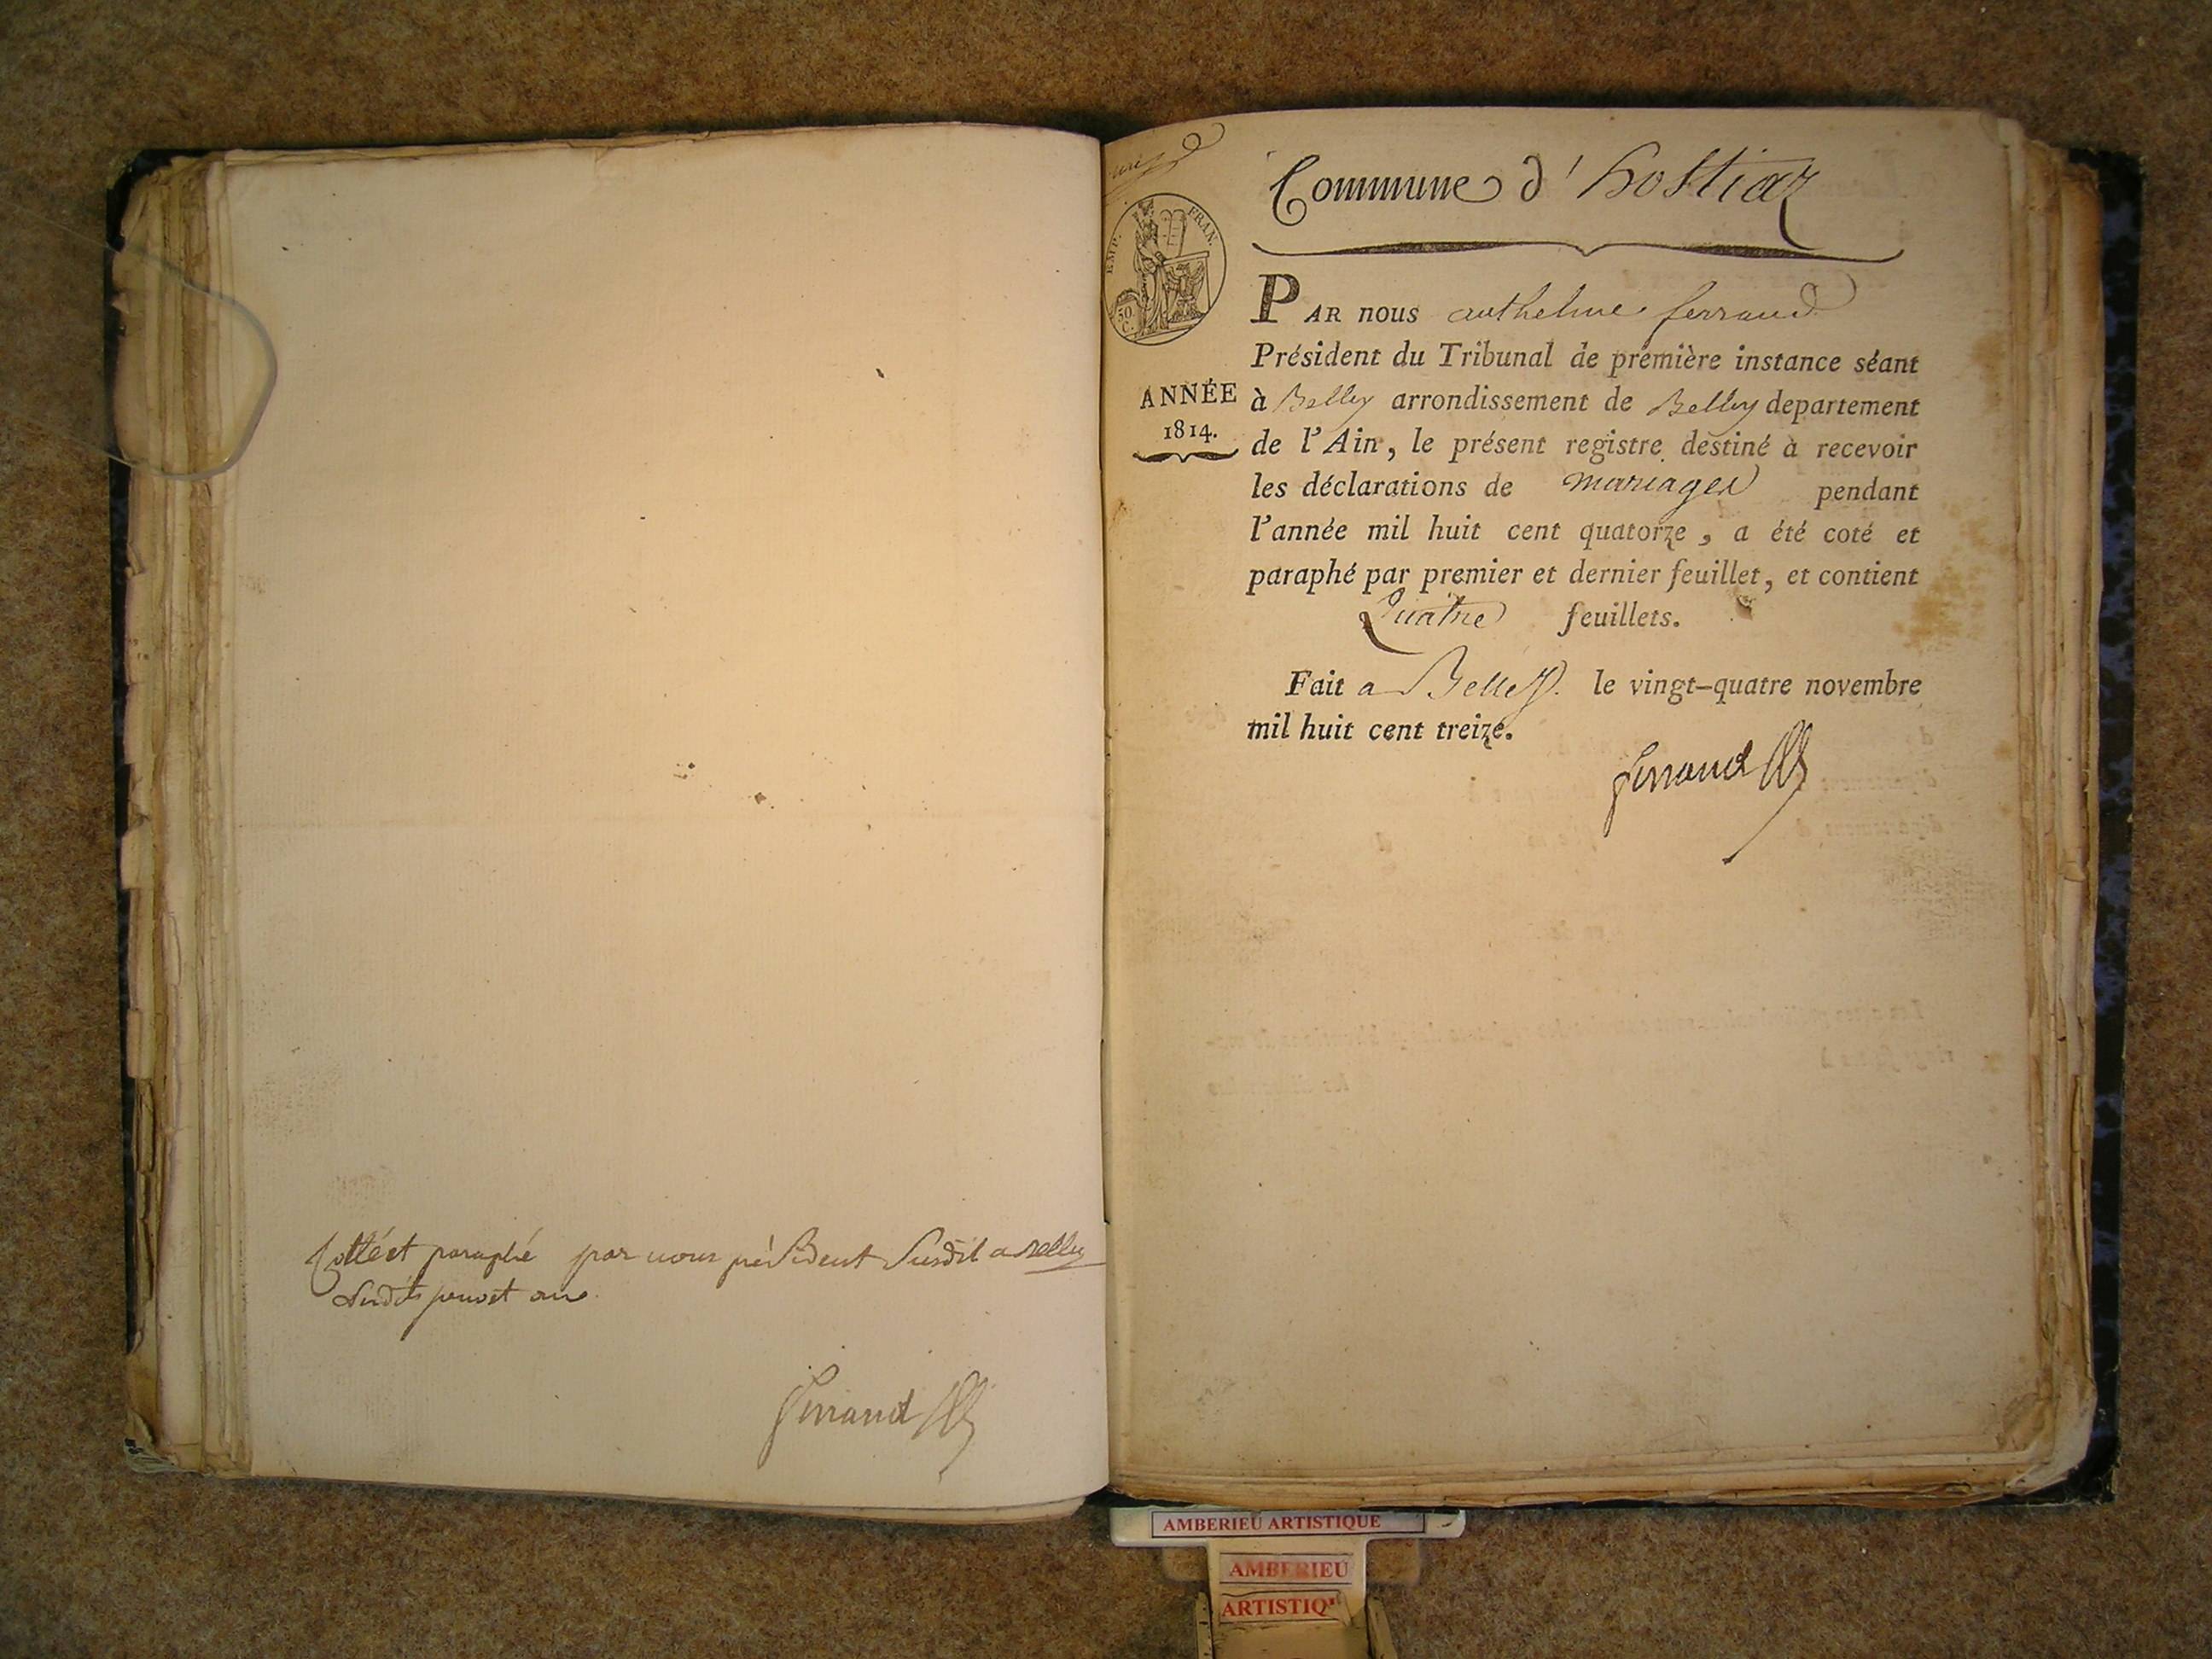 Cotté et paraphé par nous président susdit a Belley
susdits jour et an
ferrand
Commune d'hostiaz
EMP. FRAN.
50.
C.
PAR nous anthelme ferrand
Président du Tribunal de première instance séant
ANNÉE
1814.
à Belley arrondissement de Belley departement
de l'Ain, le présent registre destiné à recevoir
les déclarations de mariages pendant
l'année mil huit cent quatorze, a été coté et
paraphé par premier et dernier feuillet, et contient
Quatre feuillets.
Fait a Belley. le vingt-quatre novembre
mil huit cent treize.
ferrand
AMBERIEU ARTISTIQUE
AMBERIEU
ARTISTIQ